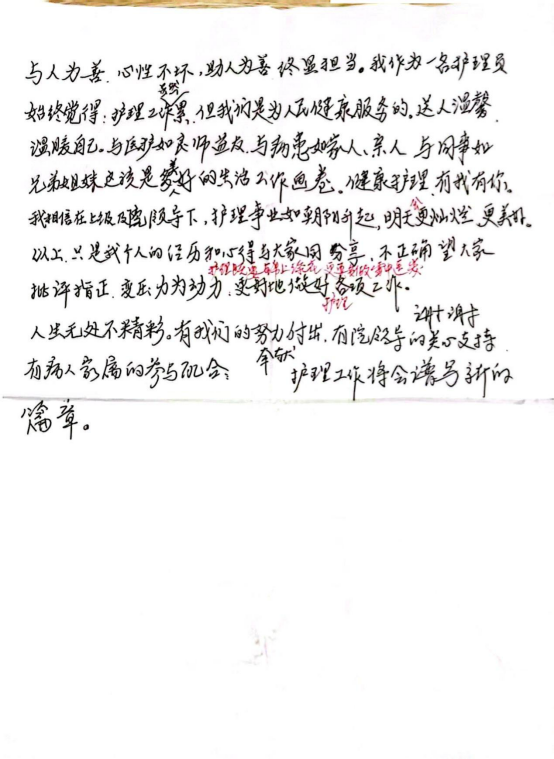 与人为善、心性不坏，助人为善终显担当。我作为一名护理员
虽然
始终觉得：护理工作累，但我们是为人民健康服务的。送人温馨
温暖自己。与医护如良师益友、与病患如家人、亲人 与同事如
兄弟姐妹 这该是美好的生活工作画卷。健康护理，有我有你。
会
我相信在上级及院领导下，护理事业如朝阳升起，明天更灿烂 更美好。
以上，只是我个人的经历和心得与大家同分享，不正确望大家
护理
批评指正，变压力为动力，更好地做好各项工作。
谢谢
人生无处不精彩。有我们的努力付出，有院领导的关心支持
有病人家属的参与配合； 护理工作将会谱写新的
篇章。